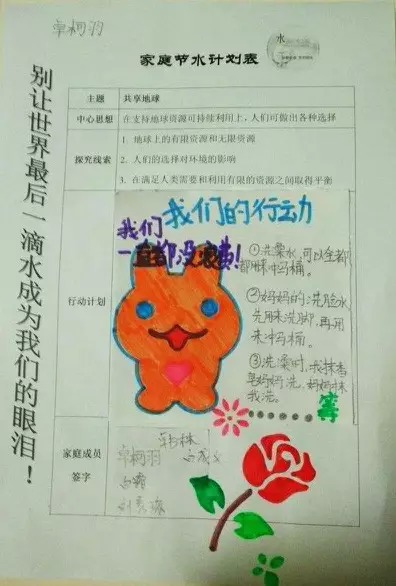 卓柯羽
水
家庭节水计划表
别让世界最后一滴水成为我们的眼泪！
主题 共享地球
中心思想 在支持地球资源可持续利用上，人们可做出各种选择
探究线索
1. 地球上的有限资源和无限资源
2. 人们的选择对环境的影响
3. 在满足人类需要和利用有限的资源之间取得平衡
行动计划
我们的行动
我们
一直都没浪费！
①洗澡水，可以全部
都用来冲马桶。
②妈妈的洗脸水
先用来洗脚，再用
来冲马桶。
③洗澡时，我抹香
皂妈妈洗，妈妈抹
我洗。
家庭成员
签字
卓柯羽